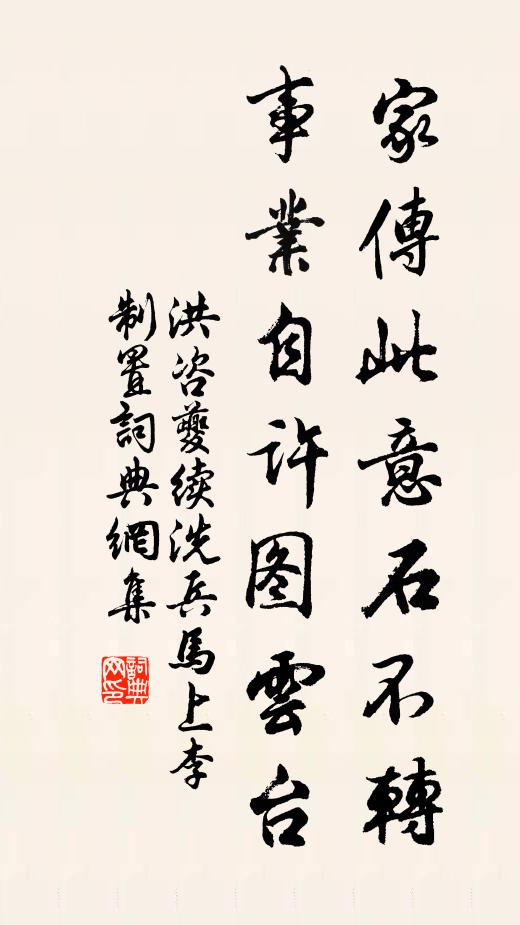 家傳此意石不轉
事業自许图雲台
洪咨夔续洗兵馬上李
制置詞典網集
詞典网印